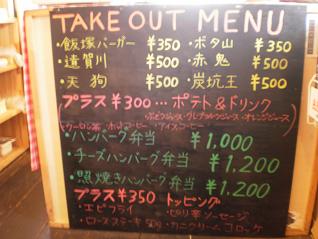 TAKE OUT MENU
・飯塚バーガー ¥350 ・ボタ山 ¥350
・遠賀川 ¥500 ・赤鬼 ¥500
・天狗 ¥500 ・炭坑王 ¥500
プラス¥300…ポテト&ドリンク
オレンジジュース
ウーロン茶 ホットコーヒー アイスコーヒー
・ハンバーグ弁当 ¥1,000
・チーズハンバーグ弁当 ¥1,200
・照焼きハンバーグ弁当 ¥1,200
プラス¥350 トッピング
・エビフライ ・ピリ辛ソーセージ
・ロースステーキ50g ・カニクリームコロッケ